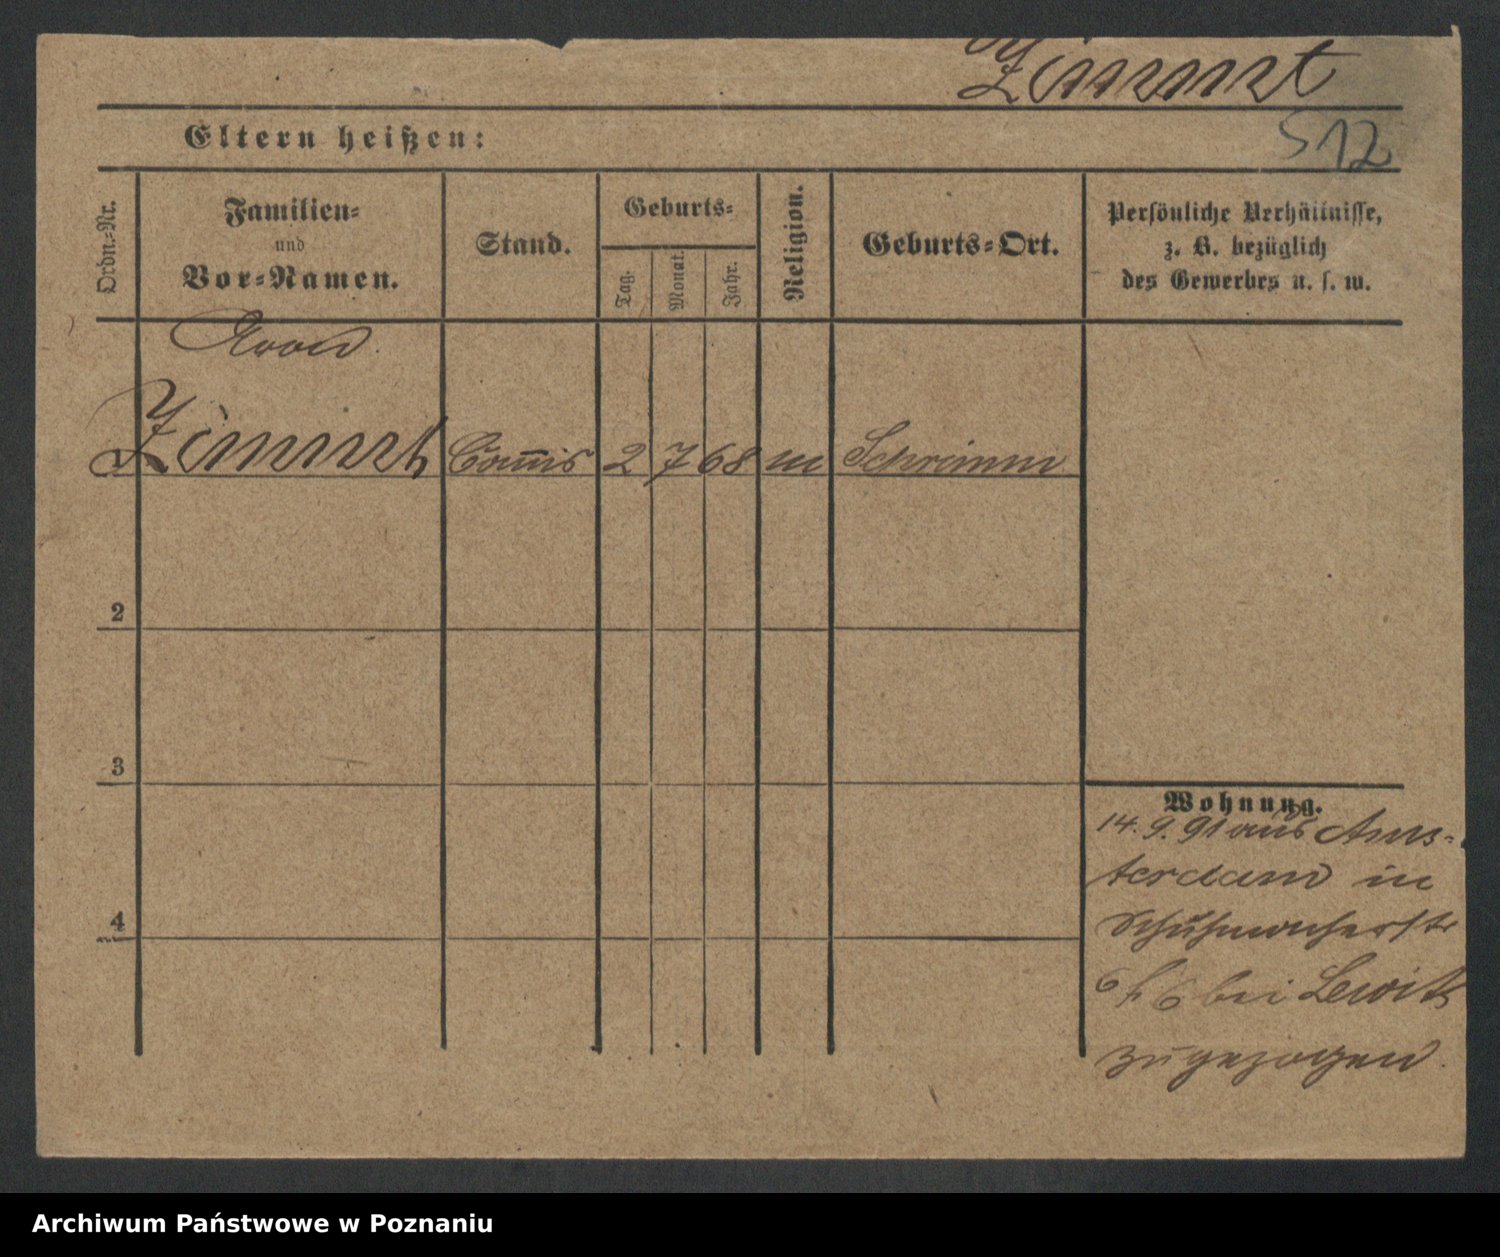 Zimmt
512
Eltern heißen:
Ordn.-Nr.
Familien-
und
Vor-Namen.
Stand.
Geburts-
Tag.
Monat.
Jahr.
Religion.
Geburts-Ort.
Persönliche Verhältnisse,
z. B. bezüglich
des Gewerbes u. s. w.
Aron
Zimmt Com̄is 2 7 68 m Schrimm
2
3
4
Wohnung.
14. 9. 91 aus Ams-
terdam in
Schuhmacherstr
6 h 6 bei Lewitt
zugezogen.
Archiwum Państwowe w Poznaniu